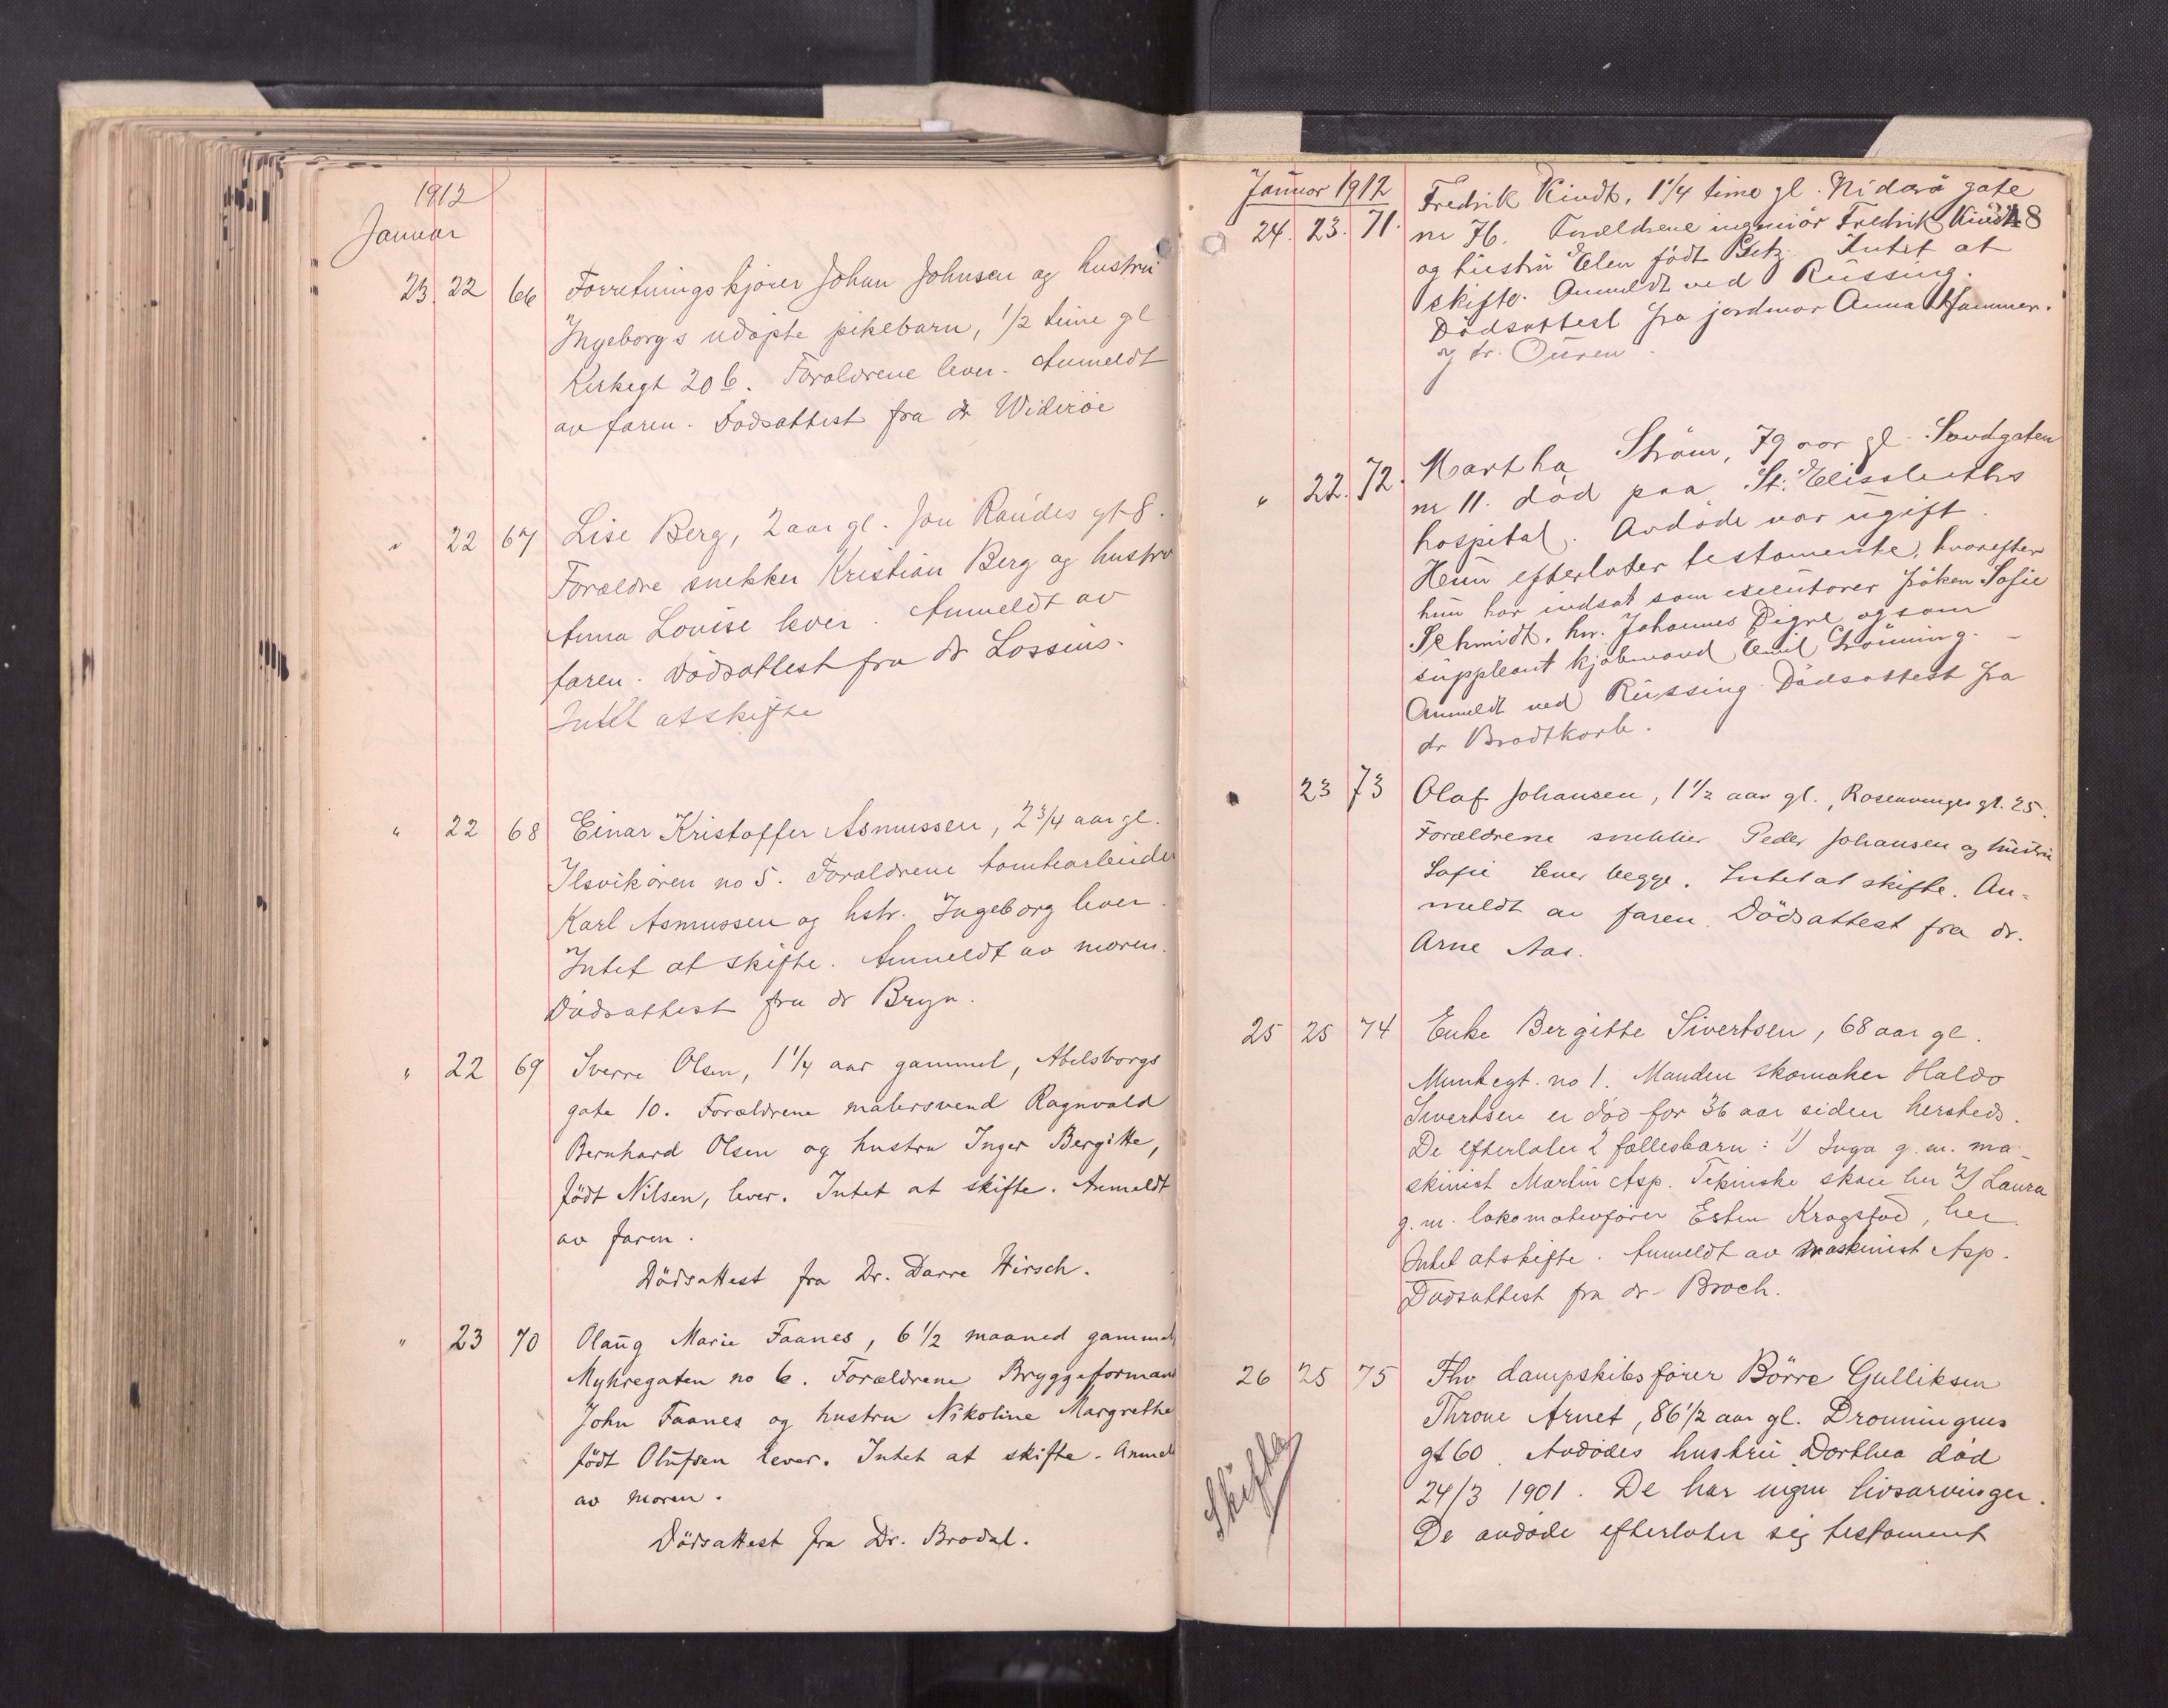 1912
Januar
23. 22 66 Forretningskjører Johan Johnsen og hustru
Ingeborgs udøpte pikebarn, 1/2 time gl
Kirkegt 20 b. Forældrene lever. Anmeldt
av faren. Dødsattest fra dr Widerøe
" 22 67 Lise Berg, 2 aar gl. Jon Raudes gt 8.
Forældre snekker Kristian Berg og hustru
Anna Louise lever. Anmeldt av
faren. Dødsattest fra dr Lossius.
Intet at skifte
" 22 68 Einar Kristoffer Asmussen, 2 3/4 aar gl.
Ilsvikøren no 5. Forældrene tomtearbeider
Karl Asmussen og hstr. Ingeborg lever.
Intet at skifte. Anmeldt av moren.
Dødsattest fra dr Bryn.
" 22 69 Sverre Olsen, 1 1/4 aar gammel, Abelsborgs
gate 10. Forældrene malersvend Ragnvald
Bernhard Olsen og hustru Inger Bergitte,
født Nilsen, lever. Intet at skifte. Anmeldt
av faren.
Dödsattest fra Dr. Darre Hirsch.
" 23 70 Olaug Marie Faanes, 6 1/2 maaned gammel
Mykregaten no 6. Forældrene Bryggeformand
John Faanes og hustru Nikoline Margrethe
født Olufsen lever. Intet at skifte. Anmel
av moren.
Dödsattest fra Dr. Brodal.
Januar 1912
48
24. 23. 71. Fredrik Kindt, 1 1/4 time gl. Nidarö gate
nr 76. Forældrene ingeniör Fredrik Kindt
og hustru Elen födt Getz. Intet at
skifte. Anmeldt ved Rüssing.
Dödsattest fra jordmor Anna Hammer.
og dr. Ouren.
" 22. 72. Martha Ström, 79 aar gl. Sandgaten
nr 11. död paa St. Elisabeths
hospital. Avdöde var ugift.
Hun efterlater testamente, hvorefter
hun har indsat som executorer fröken Sofie
Schmidt, hr. Johannes Digre og som
suppleant kjöbmand Emil Grönning. -
Anmeldt ved Rüssing. Dödsattest fra
dr Brodtkorb.
" 23 73 Olaf Johansen, 1 1/2 aar gl., Rosenvinges gt. 25.
Forældrene snekker Peder Johansen og hustru
Sofie lever begge. Intet at skifte. An-
meldt av faren. Dödsattest fra dr.
Arne Aas.
25 25 74 Enke Bergitte Sivertsen, 68 aar gl.
Munkegt. no 1. Manden skomaker Haldo
Sivertsen er død for 36 aar siden hersteds.
De efterlater 2 fællesbarn: 1) Inga g. m. ma-
skinist Martin Asp. Tekniske skole her 2) Laura
g. m. lokomotivfører Esten Kragstad, her.
Intet at skifte. Anmeldt av maskinist Asp.
Dødsattest fra dr. Broch.
26 25 75 Fhv dampskibsfører Börre Gulliksen
Throne Arnet, 86 1/2 aar gl. Dronningens
gt 60. Avdødes hustru Dorthea død
24/3 1901. De har ingen livsarvinger.
De avdøde efterlater sig testament
Skifte